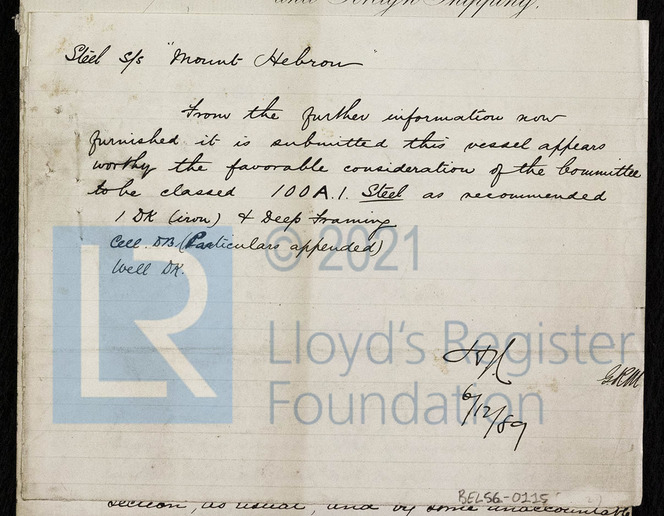 and Foreign Shipping.
Steel S/s "Mount Hebron"
From the further information now
furnished it is submitted this vessel appears
worthy the favorable consideration of the Committee
to be classed 100A.1. Steel as recommended
1 DK (iron) & Deep Framing
Cell. DB (Particulars appended)
Well DK.
© 2021
LR
Lloyd's Register
Foundation
6/12/89
BEL56-0115
section, as usual, and by some unaccountable